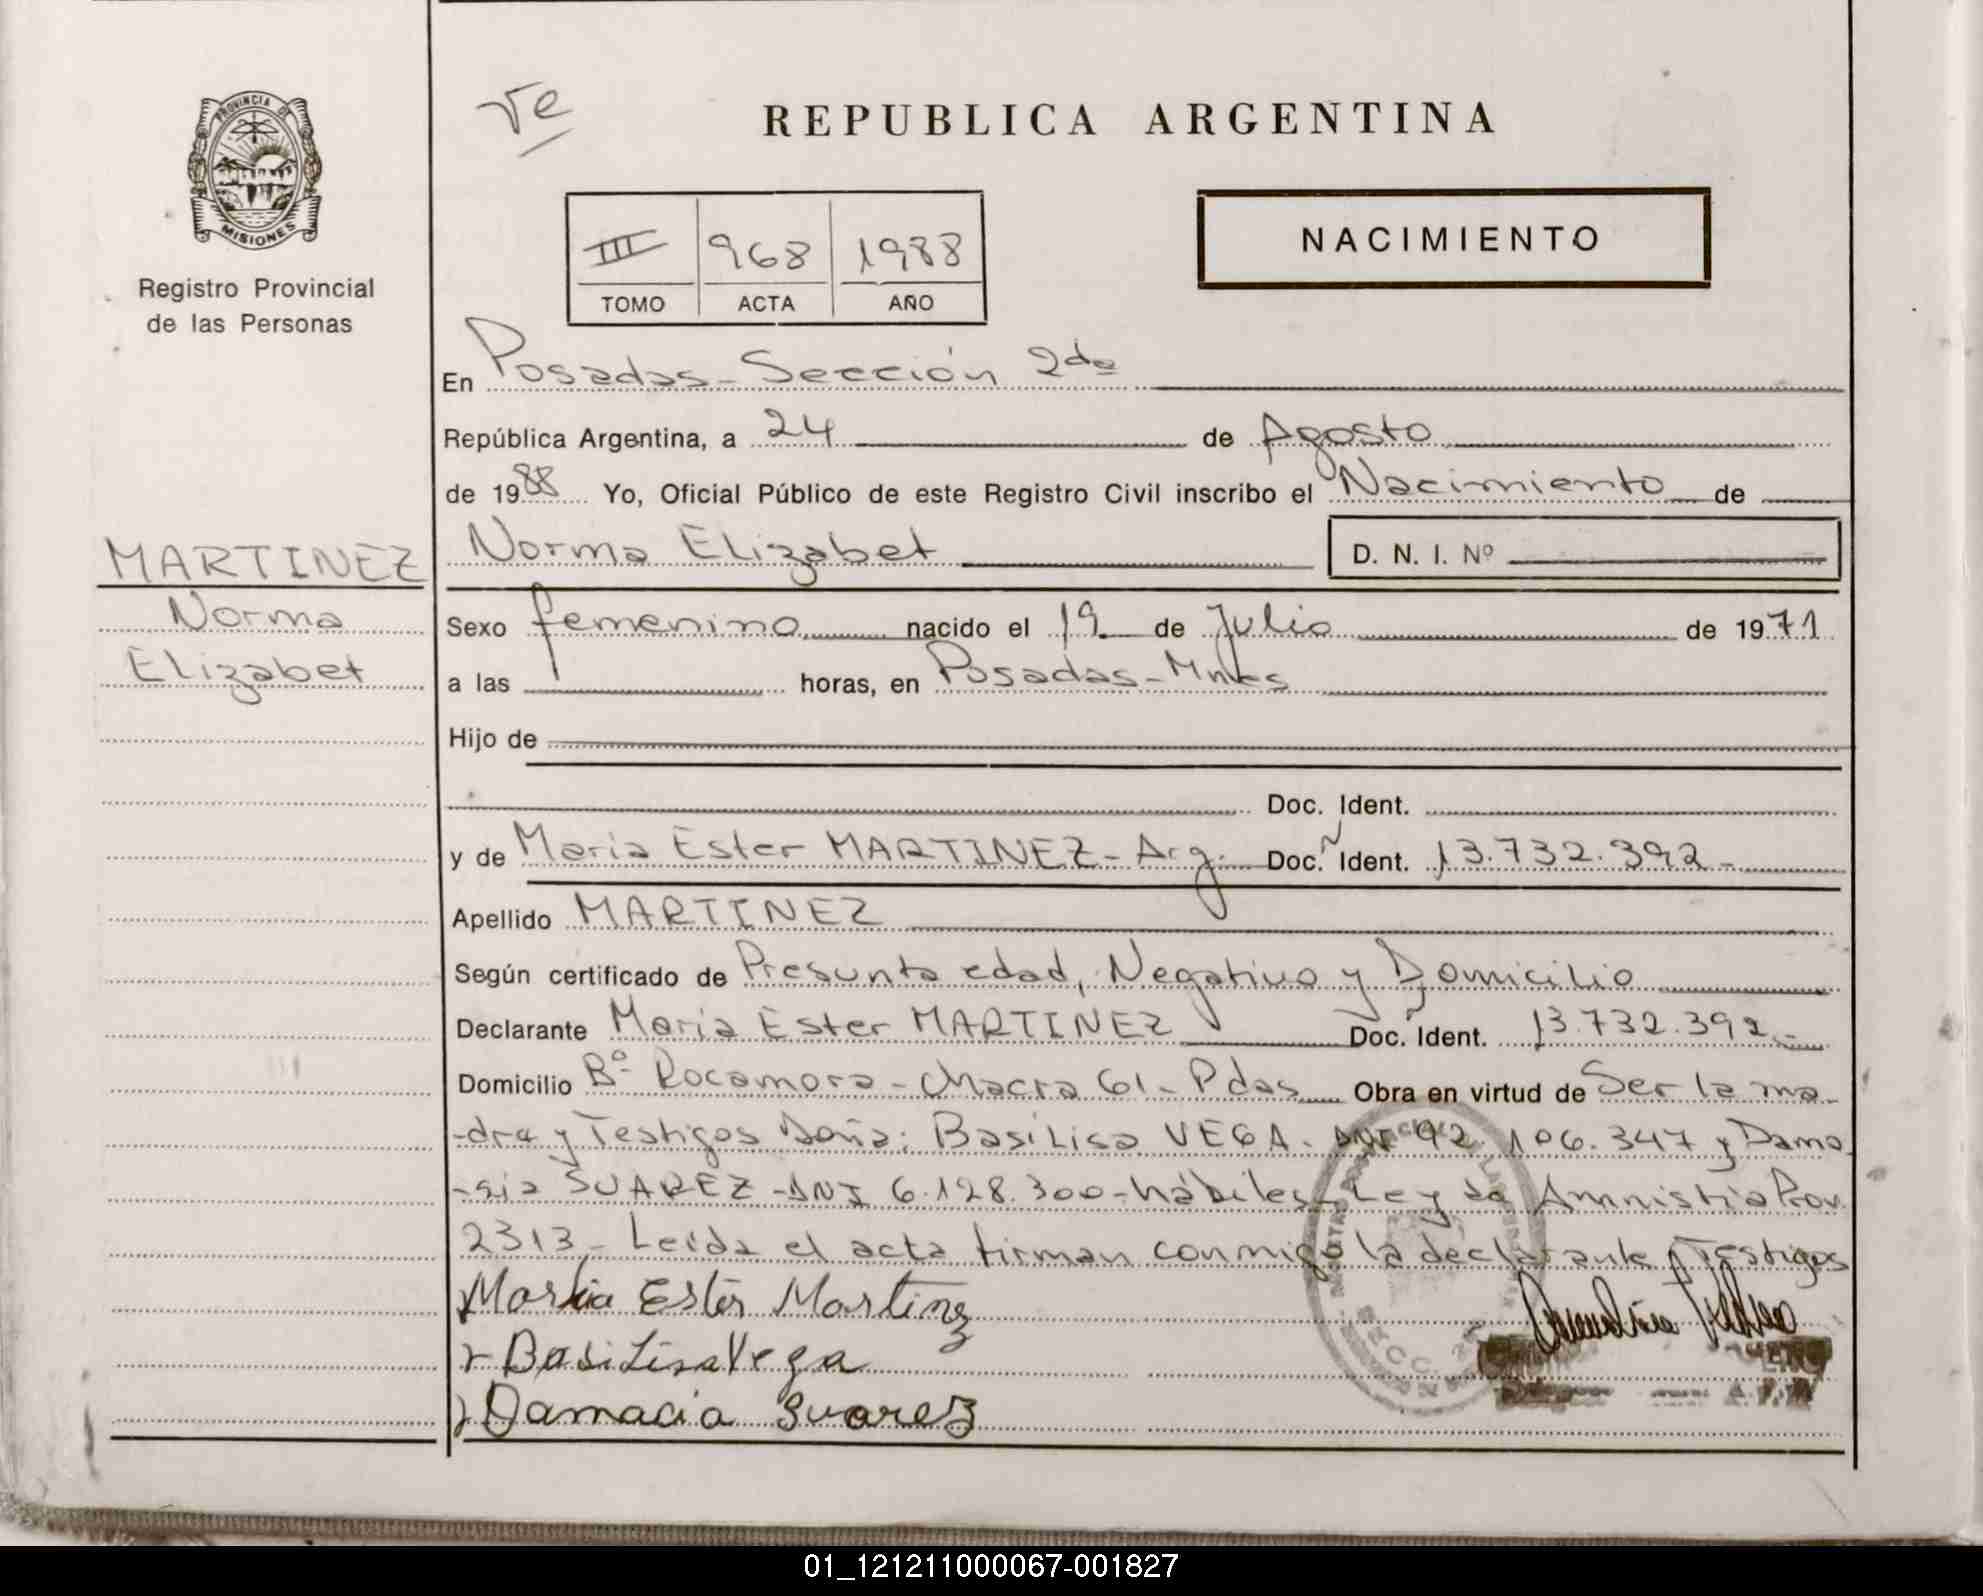 Ve
REPUBLICA ARGENTINA
PROVINCIA DE
MISIONES
Registro Provincial
de las Personas
NACIMIENTO
III 968 1988
TOMO ACTA AÑO
En Posadas - Sección 2da
República Argentina, a 24 de Agosto
de 1988 Yo, Oficial Público de este Registro Civil inscribo el Nacimiento de
MARTINEZ
Norma
Elizabet
Norma Elizabet D. N. I. Nº
Sexo femenino nacido el 19 de Julio de 1971
a las horas, en Posadas - Mnes
Hijo de
Doc. Ident.
y de Maria Ester MARTINEZ - Arg. Doc. Ident. 13.732.392 -
Apellido MARTINEZ
Según certificado de Presunta edad, Negativo y Domicilio
Declarante Maria Ester MARTINEZ Doc. Ident. 13.732.392.-
Domicilio Bº Rocamora - Chacra 61 - Pdas Obra en virtud de Ser la ma-
-dre y Testigos Doña: Basilisa VEGA - DNI 92.106.347 y Dama
-sia SUAREZ - DNI 6.128.300 - hábiles - Ley de Amnistía Prov.
2313 - Leída el acta firman conmigo la declarante y Testigos
Maria Ester Martinez
Basilisa Vega
Damacia Suarez
01_121211000067-001827